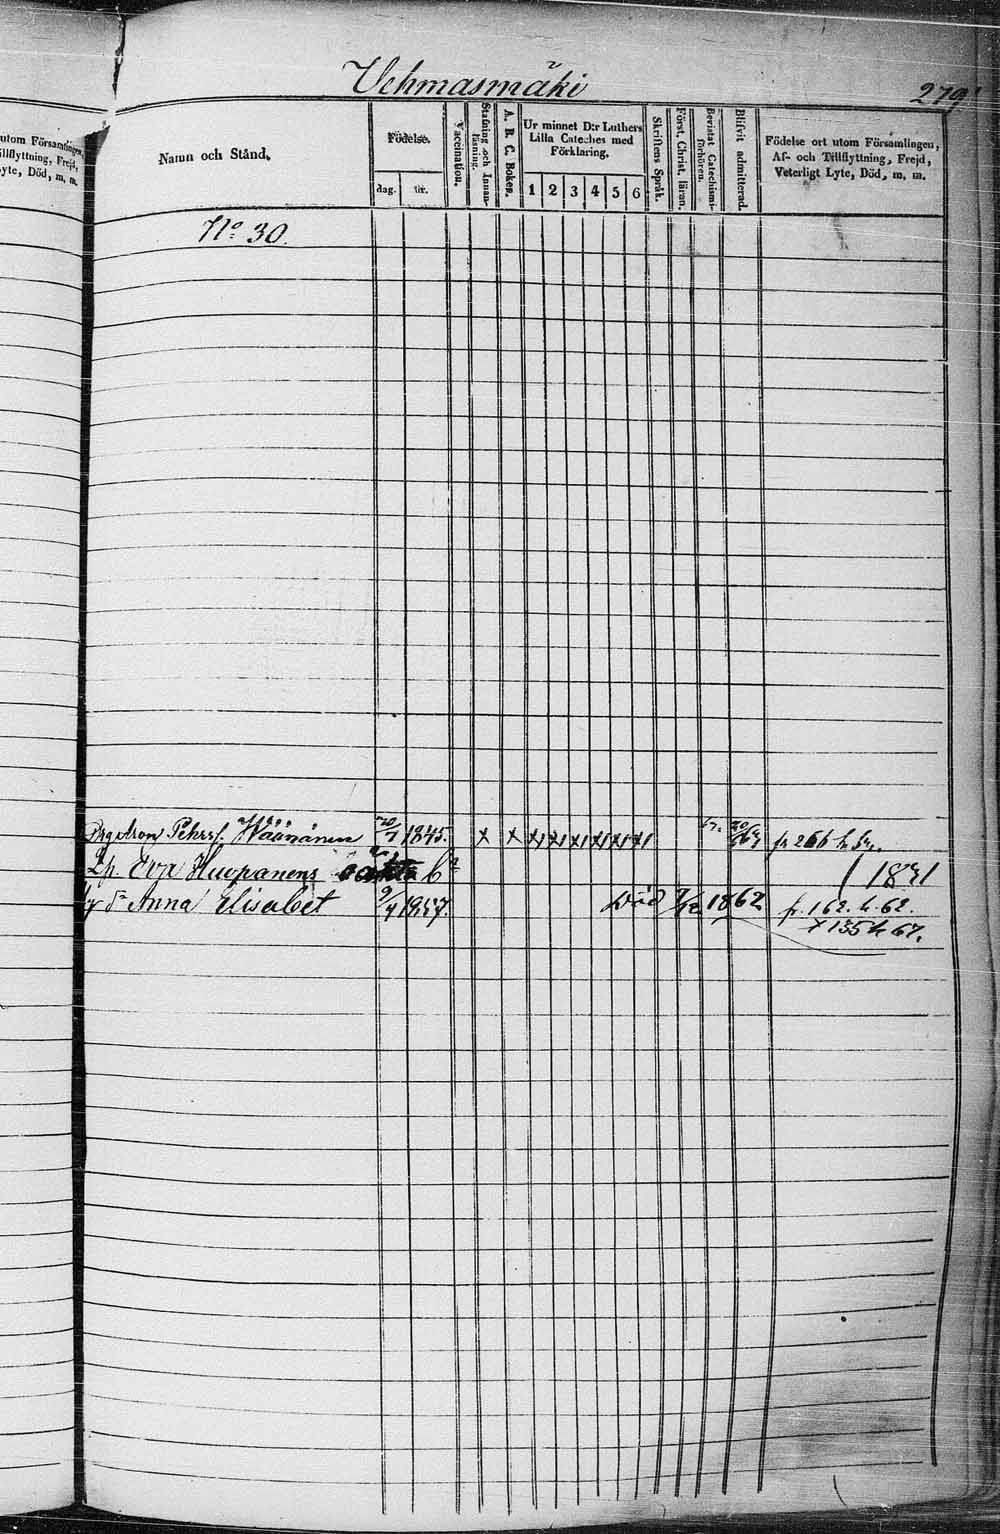 Vehmasmäki
279
utom Församlingen,
Tillflyttning, Frejd,
Lyte, Död, m. m.
Namn och Stånd.
Födelse.
dag.
år.
Vaccination.
Stafning och Innanläsning.
A. B. C. Boken.
Ur minnet D:r Luthers Lilla Cateches med Förklaring.
1 2 3 4 5 6
Skriftens Språk.
Först. Christ. läran.
Bevistat Catechismi-förhören.
Blifvit admitterad.
Födelse ort utom Församlingen, Af- och Tillflyttning, Frejd, Veterligt Lyte, Död, m. m.
No 30.
Aron Pehrss. Wäänänen 20/7 1845. x x x x x x x x fr 266
Lp. Eva Huopanens 1871
d Anna Elisabet 9/4 Död 7/12 1862 fr. 162. h. 62.
135 h 67.